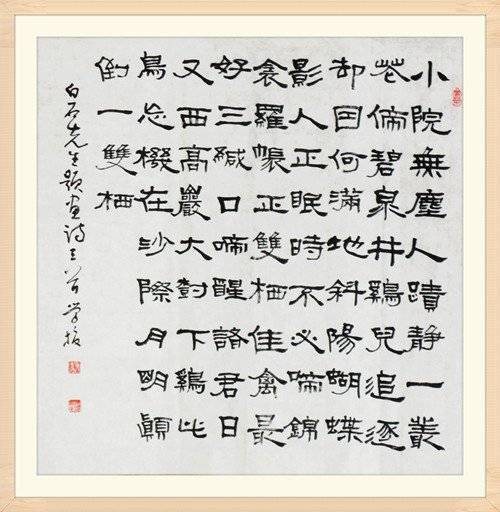 小院無塵人蹟靜一叢
花傍碧泉井鷄兒追逐
却因何滿地斜陽蝴蝶
影人正眠時不必啼錦
衾羅帳正雙栖佳禽最
好三緘口啼醒諸君日
又西高巖大對下鷄此
鳥忘機在沙際月明顛
倒一雙栖
白石先生題畫詩三首 学振